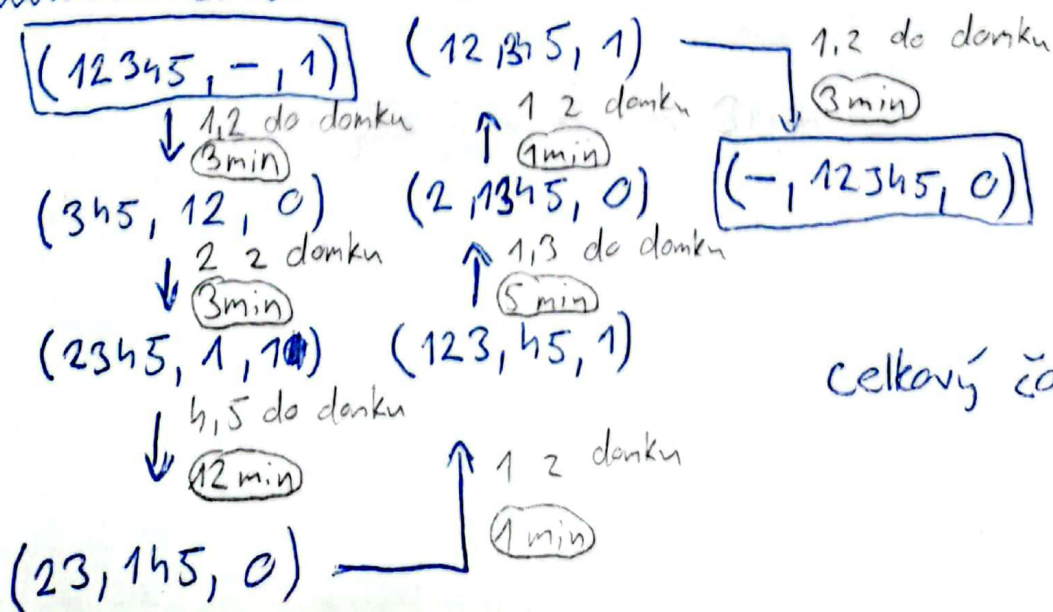 (12345, -, 1)
1,2 do domku
3min
(345, 12, 0)
2 z domku
3min
(2345, 1, 1)
4,5 do domku
12 min
(23, 145, 0)
1 z domku
1 min
(123, 45, 1)
1,3 do domku
5 min
(2, 1345, 0)
1 z domku
1min
(12, 345, 1)
1,2 do domku
3min
(-, 12345, 0)
celkový